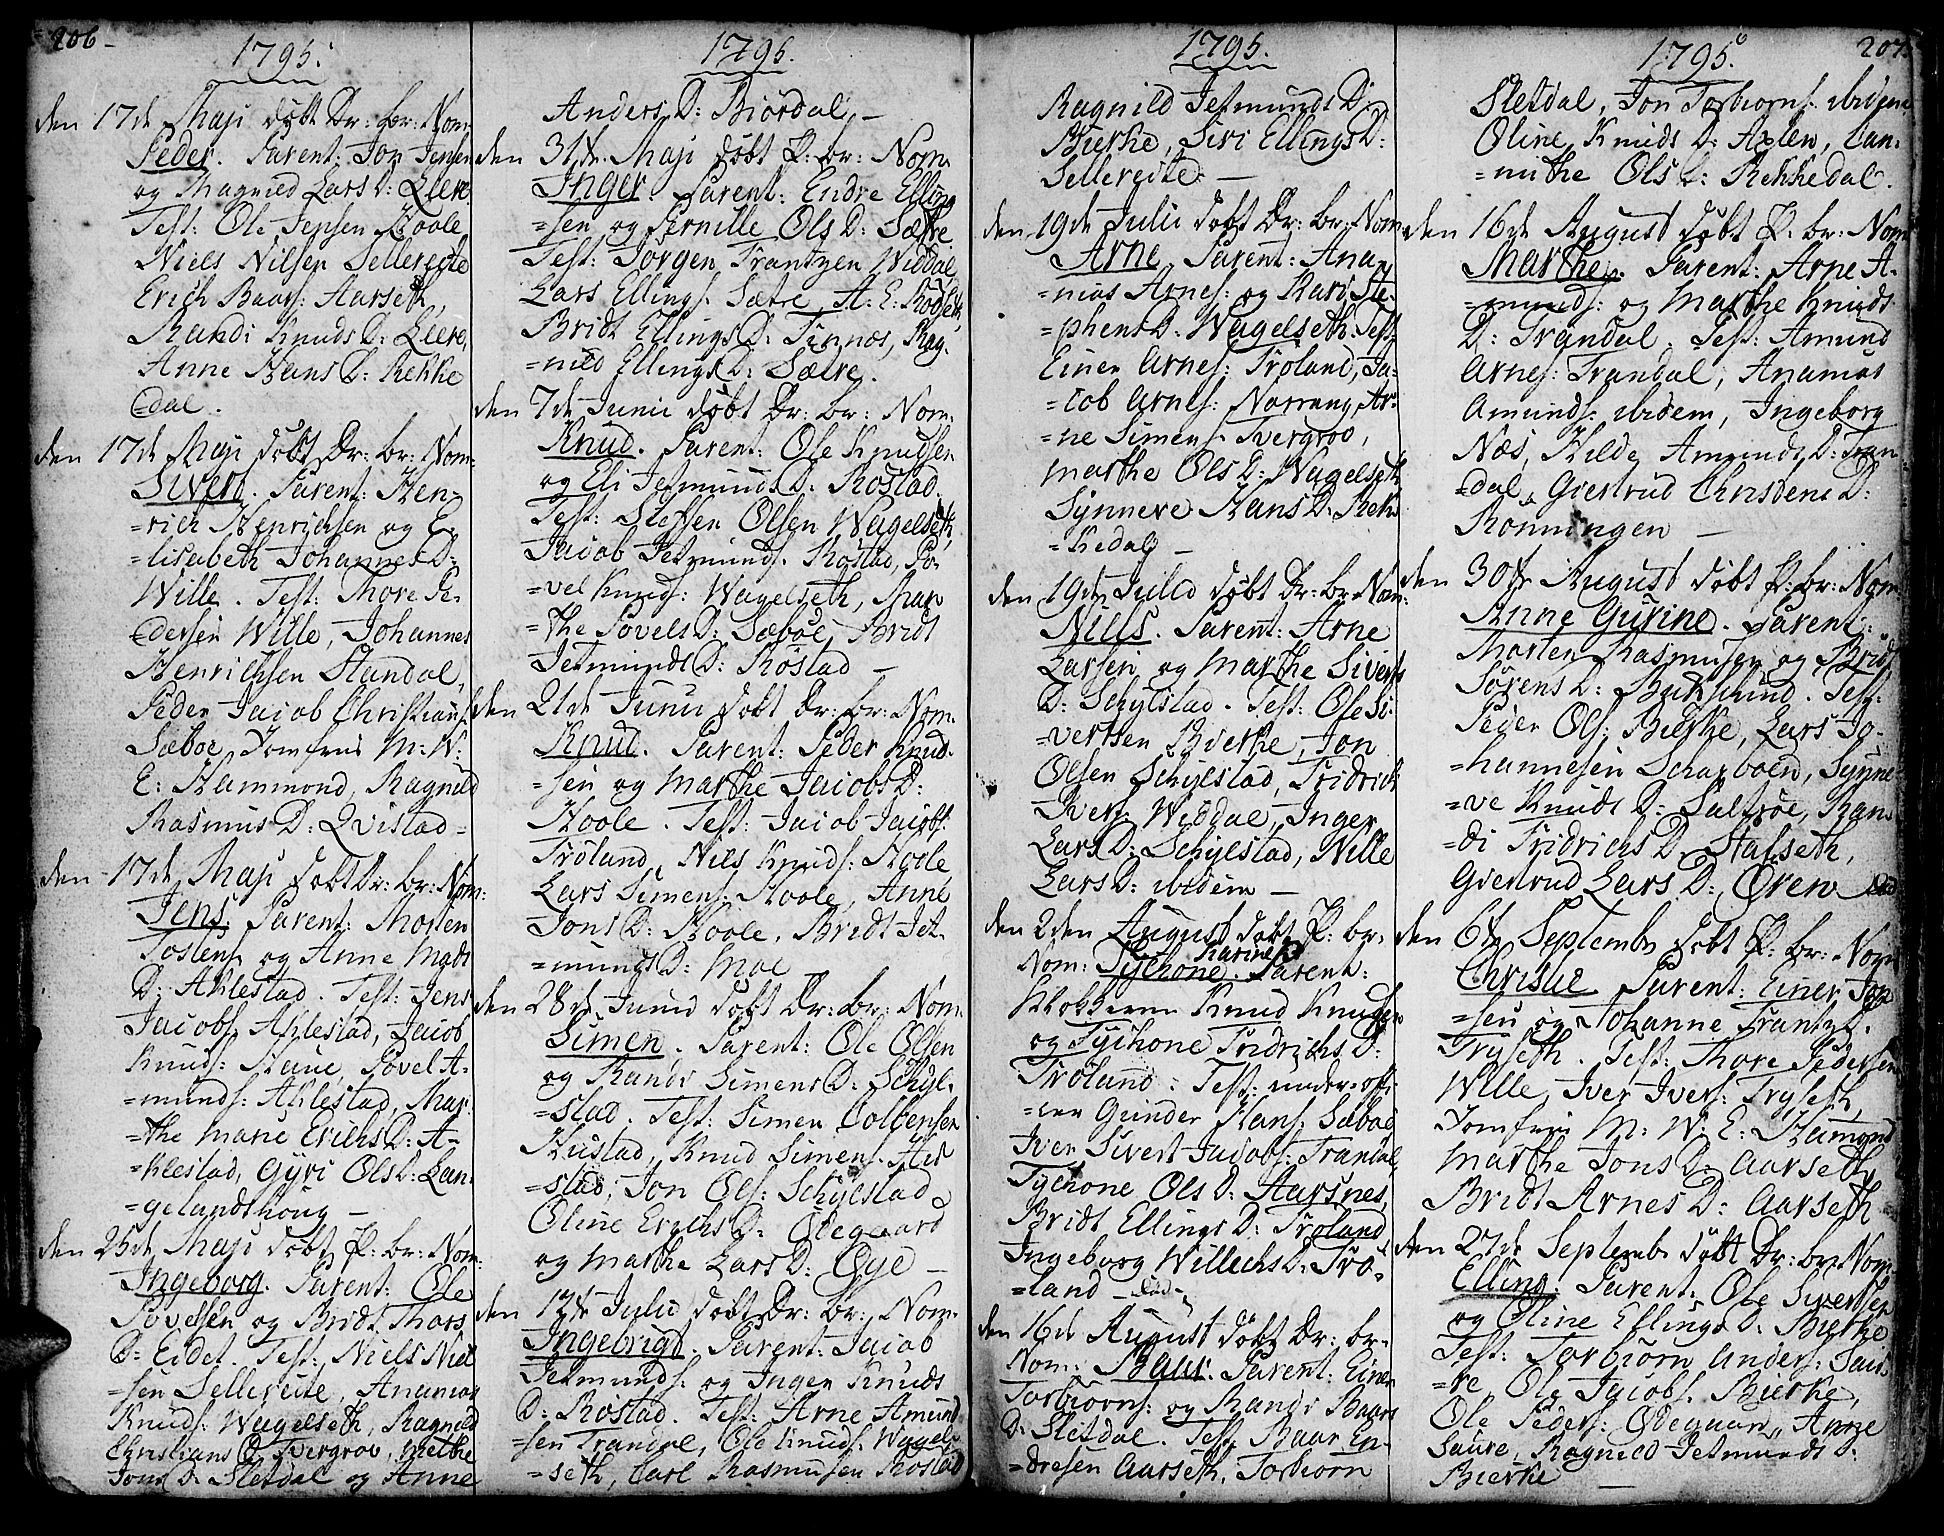 206
1795.
den 17de Maji döbt Dr: br: Nom.
Peder. Parent: Jon Jensen
og Magnild Lars D: Leere
Test: Ole Jensen Hoole
Niels Nilsen Sellereite
Erich Baars: Aarseth,
Randi Knuds D: Leere,
Anne Hans D: Rekke
=dal.
den 17de Maji döbt Dr: br: Nom:
Sivert. Parent: Hen-
=rich Henrichsen og E-
=lisabeth Johannes D:
Wille. Test: Thore Pe-
=dersen Wille, Johannes
Henrichsen Standal,
Peder Jacob Christians:
Sæboe, Jomfrui M: W:
E: Hammond, Ragnild
Rasmus D: Qvistad=
den 17de Maji döbt Dr: br: Nom:
Jens. Parent: Morten
Tostens: og Anne Mads
D: Ahlestad. Test: Jens
Jacobs: Ahlestad, Jacob
Knuds: Staue, Povel A-
=munds: Ahlestad, Mar-
=the Marie Erichs D: A-
=hlestad, Gÿri Ols D: Lan-
=gelandshoug –
den 25de Maji döbt P: br: Nom:
Ingeborg. Parent: Ole
Povelsen og Bridt Thors
D: Eidet. Test: Niels Niel
=sen Sellereite, Ananias
Knuds: Wagelseth, Ragnild
Christians D: Tvergrov, Methe
Jons D: Sletdal og Anne
1795.
Anders D: Biordal –
den 31de Maji döbt P: br: Nom.
Inger. Parent: Endre Elling
=sen og Pernille Ols D: Sætre.
Test: Jorgen Frantzen Widdal,
Lars Ellings: Sætre, A: E: Rödseth,
Bridt Ellings D: Finnæs, Rag-
=nild Ellings D: Sætre.
den 7de Junii döbt Dr: br: Nom.
Knud. Parent: Ole Knudsen
og Eli Jetmunds D: Rostad.
Test: Steffen Olsen Wagelseth,
Jacob Jetmunds: Rostad, Po-
=vel Knuds: Wagelseth, Mar
=the Povels D: Sæboe, Bridt
Jetmunds D: Rostad –
den 21de Junii döbt Dr: br: Nom.
Knud. Parent: Peder Knud-
=sen og Marthe Jacobs D:
Hoole. Test: Jacob Jacobs:
Tröland, Nils Knuds: Hoole,
Lars Simens: Hoole, Anne
Jons D: Hoole, Bridt Jet-
=munds D: Moe
den 28de Junii döbt Dr: br: Nom:
Simen. Parent: Ole Olsen
og Randi Simens D: Schyl-
=stad. Test: Simen Colbensen
Hustad, Knud Simens: Hu
=stad, Jon Ols: Schylstad,
Oline Erichs D: Ödegaard
og Marthe Lars D: Öye –
den 12te Julii döbt Dr: br: Nom:
Ingebrigt. Parent: Jacob
Jetmunds: og Inger Knuds
D: Rostad. Test: Arne Amund
=sen Trandal, Ole Knuds: Wagel-
=seth, Carl Rasmusen Rostad
1795.
Ragnild Jetmunds D:
Bierke, Siri Ellings D:
Sellereite –
den 19de Julii döbt Dr: br: Nom
Arne. Parent: Ana-
=nias Arnes: og Kari Ste-
=phens D: Wagelseth. Test:
Einer Arnes: Tröland, Ja-
=cob Arnes: Norrang, Ar-
=ne Simens: Tvergrov,
Marthe Ols D: Wagelseth
Synneve Hans D: Rek
=kedal –
den 19de Julii döbt Dr: br: Nom:
Nills. Parent: Arne
Larsen og Marthe Siverts
D: Schylstad. Test: Ole Si-
=vertsen Bierke, Jon
Olsen Schylstad, Fridrich
Ivers: Widdal, Inger
Lars D: Schylstad, Nille
Lars D: ibidem –
den 2den August döbt P: br:
Karine
Nom: Tychone. Parent:
Klokkeren Knud Knudsen
og Tychone Fridrichs D:
Tröland. Test: under-offi-
=cer Gunder Hans: Sæboe
Iver Sivert Jacobs: Trandal,
Tychone Ols D: Aarsnes,
Bridt Ellings D: Tröland
Ingeborg Willechs D: Trö-
=land –
den 16de August döbt Dr: br:
Nom: Baar. Parent: Einer
Torbiorns: og Randi Baars
D: Sletdal. Test: Baar En-
=dresen Aarseth, Torbiorn
1795.
207.
Sletdal, Jon Torbiorns: ibidem,
Oline Knuds D: Axlen, Can-
=nuthe Ols D: Rekkedal.
den 16de August döbt P: br: Nom
Marthe. Parent: Arne A-
=munds: og Marthe Knuds
D: Trandal. Test: Amund
Arnes: Trandal, Ananias
Amunds: ibidem, Ingeborg
Næs, Hilde Amunds D: Tran-
=dal, Giertrud Christens D:
Rönningen –
den 30te August döbt P: br: Nom
Anne Gurine. Parent:
Morten Rasmusen og Bridt
Sörens D: Buksehiud. Test:
Peder Ols: Bierke, Lars Jo-
=hannesen Scharboen, Synne-
=ve Knuds D: Saltröe, Ran-
=di Fridrichs D: Stafseth,
Giertrud Lars D: Ören
den 6te Septembr döbt P: br: Nom
Christie. Parent: Einer Jon
=sen og Johanne Frantz D.
Tryseth. Test: Thore Pedersen
Wille, Iver Ivers: Tryseth,
Jomfrui M: W: E: Hamond
Marthe Jons D: Aarseth,
Bridt Arnes D: Aarseth
den 27de Septembr döbt Dr: br: Nom.
Elling. Parent: Ole Sivertsen
og Oline Ellings D: Bierke
Test: Torbiörn Anders: Sæis
=re, Ole Jacobs: Bierke,
Ole Peders: Ödegaar, Anne
Saure, Ragnild Jetmunds D:
Bierke –